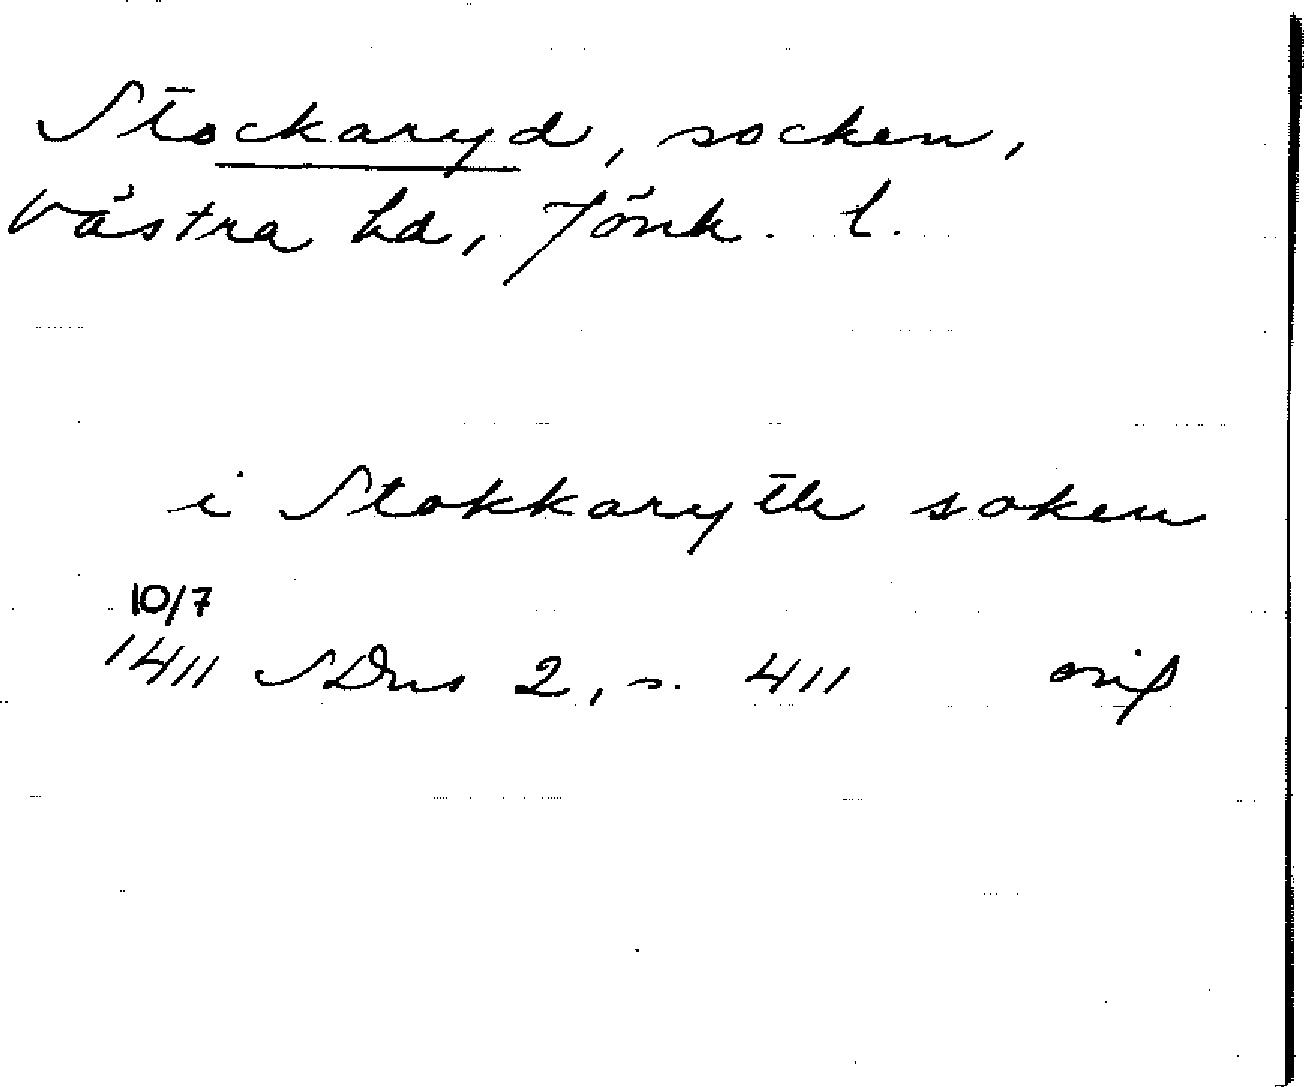 Stockaryd, socken,
Västra hd, Jönk. l.
i Stokkarytle soken
10/7
1411 SDns 2, s. 411 orig